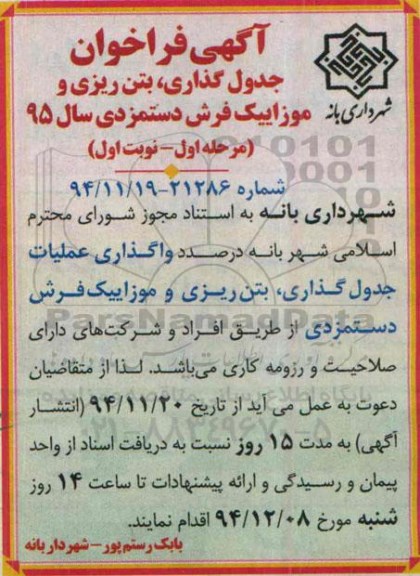 آگهی فراخوان
جدول گذاری، بتن ریزی و
موزاییک فرش دستمزدی سال ۹۵
(مرحله اول - نوبت اول)
شهرداری بانه
شماره ۲۱۲۸۶-۹۴/۱۱/۱۹
شهرداری بانه به استناد مجوز شورای محترم
اسلامی شهر بانه درصدد واگذاری عملیات
جدول گذاری، بتن ریزی و موزاییک فرش
دستمزدی از طریق افراد و شرکت‌های دارای
صلاحیت و رزومه کاری می‌باشد. لذا از متقاضیان
دعوت به عمل می آید از تاریخ ۹۴/۱۱/۲۰ (انتشار
آگهی) به مدت ۱۵ روز نسبت به دریافت اسناد از واحد
پیمان و رسیدگی و ارائه پیشنهادات تا ساعت ۱۴ روز
شنبه مورخ ۹۴/۱۲/۰۸ اقدام نمایند.
بابک رستم پور - شهردار بانه
ParsNamadData
۰۲۱-۸۸۳۴۹۶۷۰-۵